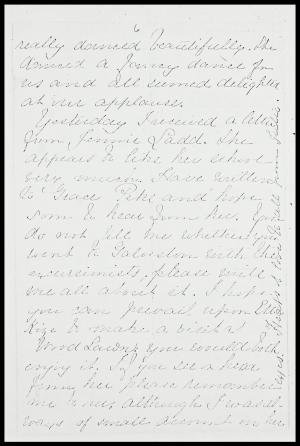 6
really danced beautifully. She
danced a fancy dance for
us and all seemed delighted
at our applause.
Yesterday I received a letter
from Jennie Ladd. She
appears to like her school
very much. Have written
to Grace Pike and hope
soon to hear from her. You
do not tell me whether you
went to Galveston with the
excursionists, please write
me all about it. I hope
you can prevail upon
to make a visit to
you would both
enjoy it. If you see or hear
from her please remember
me to her although I was al-
ways of small account in her
eyes.